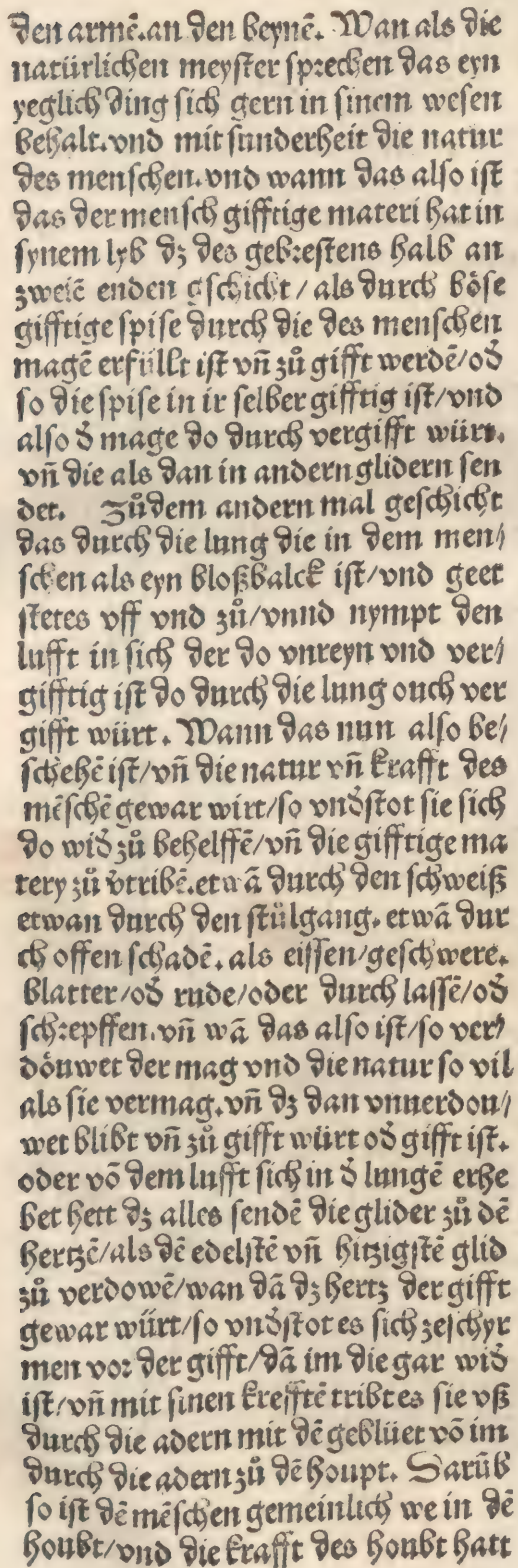 den armē.an den beynē. Wan als die
natürlichen meyster sprechen das eyn
yeglich ding sich gern in sinem wesen
behalt.vnd mit sunderheit die natur
des menschen.vnd wann das also ist
das der mensch gifftige materi hat in
synem lyb dz des gebrestens halb an
zweiē enden gschicht/als durch böse
gifftige spise durch die des menschen
magē erfüllt ist vñ zů gifft werdē/od̾
so die spise in ir selber gifftig ist/vnd
also d̾ mage do durch vergifft würt.
vñ die als dan in andern glidern sen
det. Zůdem andern mal geschicht
das durch die lung die in dem men/
schen als eyn bloßbalck ist/vnd geet
stetes vff vnd zů/vnnd nympt den
lufft in sich der do vnreyn vnd ver/
gifftig ist do durch die lung ouch ver
gifft würt. Wann das nun also be/
schehē ist/vñ die natur vñ krafft des
mēschē gewar wirt/so vnd̾stot sie sich
do wid̾ zů behelffē/vñ die gifftige ma
tery zů v̾tribē.etwā durch den schweiß
etwan durch den stülgang.etwā dur
ch offen schadē.als eissen/geschwere.
blatter/od̾ rude/oder durch lassē/od̾
schrepffen.vñ wā das also ist/so ver/
döuwet der mag vnd die natur so vil
als sie vermag.vñ dz dan vnuerdou/
wet blibt vñ zů gifft würt od̾ gifft ist.
oder vō dem lufft sich in d̾ lungē erhe
bet hett dz alles sendē die glider zů dē
hertzē/als dē edelstē vñ hitzigstē glid
zů verdowē/wan dā dz hertz der gifft
gewar würt/so vnd̾stot es sich zeschyr
men vor der gifft/dā im die gar wid̾
ist/vñ mit sinen krefftē tribt es sie vß
durch die adern mit dē geblüet vō im
durch die adern zů dē houpt. Darūb
so ist dē mēschen gemeinlich we in dē
houbt/vnd die krafft des houbt hatt